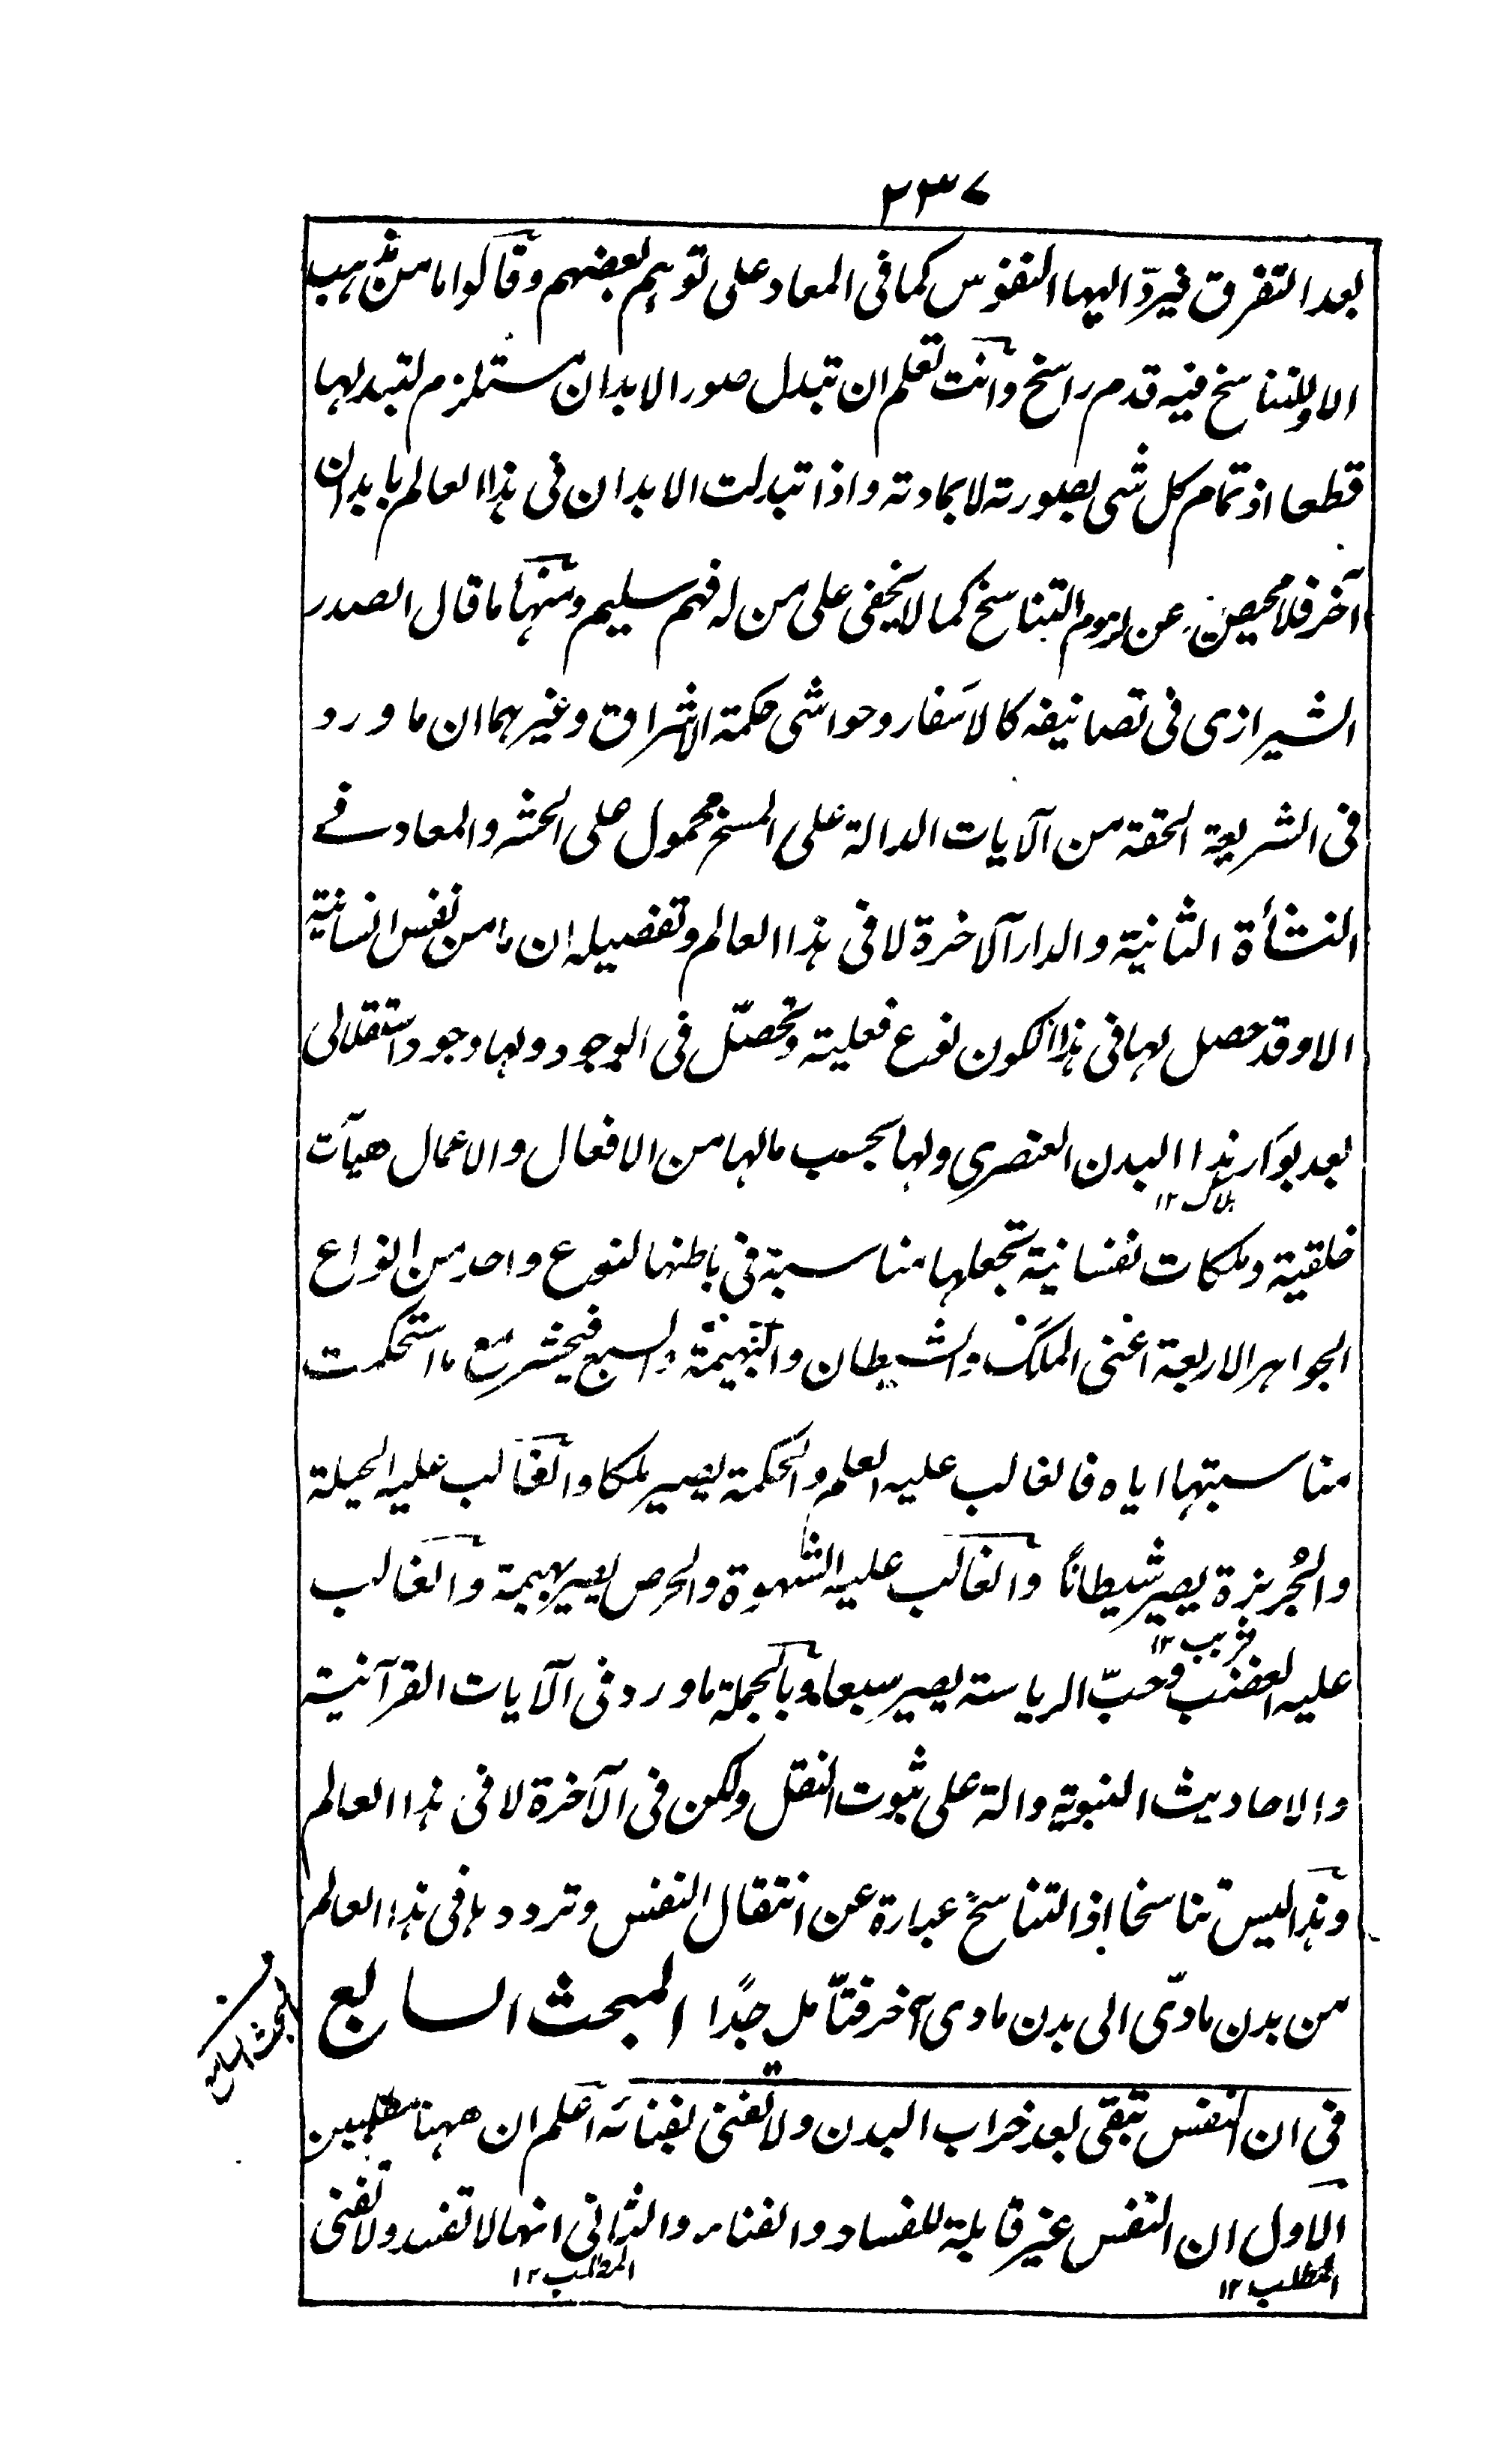 ٢٣٧
بعد التفرق فيردّ اليها النفوس كما فى المعاد على توهم بعضهم وقالوا ما من مذهب
الا وللتناسخ فيه قدم راسخ وانت تعلم ان تبدل صور الابدان مستلزم لتبدلها
قطعا اذ تمام كل شى بصورته لا بمادته واذا تبدلت الابدان فى هذا العالم بابدان
آخر فلا محيص عن لزوم التناسخ كما لا يخفى على من له فهم سليم ومنها ما قال الصدر
الشيرازى فى تصانيفه كالاسفار وحواشى حكمة الاشراق وغيرهما ان ما ورد
فى الشريعة الحقة من الآيات الدالة على المسخ محمول على الحشر والمعاد فے
النشأة الثانية والدار الآخرة لا فى هذا العالم وتفصيله ان ما من نفس انسانية
الا وقد حصل لها فى هذا الكون نوع فعلية وتحصّل فى الوجود ولها وجود استقلالى
بعد بوار هذا البدن العنصرى ولها بحسب مالها من الافعال والاعمال هيآت
هلاک ١٢
خلقية وملكات نفسانية تجعلها مناسبة فى باطنها لنوع واحد من انواع
الجواهر الاربعة اعنى الملك والشيطان والبهيمة والسبع فيحشر مع ما استحكمت
مناسبتها اياه فالغالب عليه العلم والحكمة يصير ملكا والغالب عليه الحيلة
والجُربزة يصير شيطاناً والغالب عليه الشهوة والحرص يصير بهيمة والغالب
فريب ١٢
عليه الغضب وحبّ الرياسة يصير سبعا وبالجملة ما ورد فى الآيات القرآنية
والاحاديث النبوية دالة على ثبوت النقل ولكن فى الآخرة لا فى هذا العالم
وهذا ليس تناسخا اذ التناسخ عبارة عن انتقال النفس وترددها فى هذا العالم
من بدن مادّى الى بدن مادى آخر فتأمل جدًا المبحث السابع
المبحث السابع
فى ان النفس تبقى بعد خراب البدن ولا تفنى بفنائه اعلم ان ههنا مطلبين
الاول ان النفس غير قابلة للفساد والفناء والثانى انها لا تفسد ولا تفنى
المطلب ١٢ المطلب ١٢